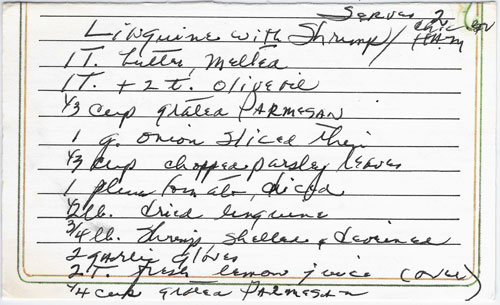 Serves 2
Linguine with Shrimp / chicken
ham
1 T. butter, melted
1 T. + 2 t. olive oil
1/3 cup grated PARMESAN
1 g. onion sliced thin
1/3 cup chopped parsley leaves
1 plum tomato, diced
1/2 lb. dried linguine
3/4 lb. shrimp, shelled & deveined
2 garlic cloves
2 T. fresh lemon juice (over)
1/4 cup grated PARMESAN